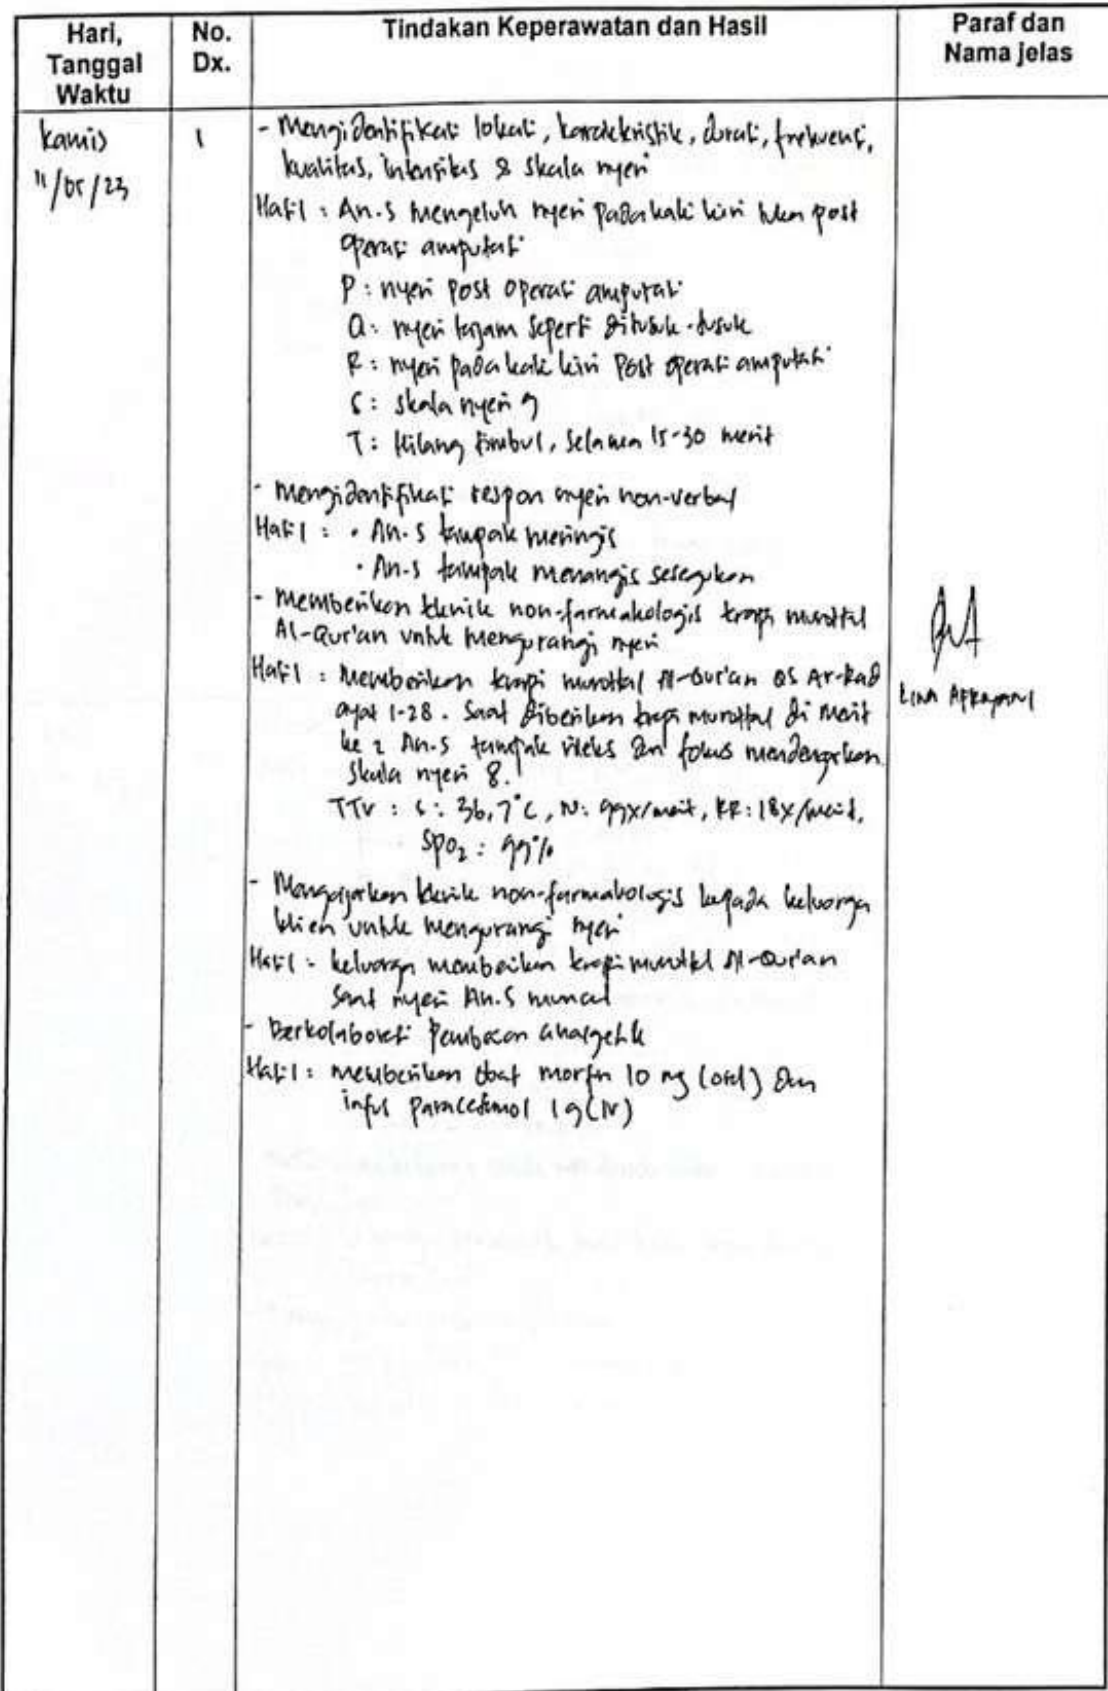 Hari, Tanggal Waktu
No. Dx.
Tindakan Keperawatan dan Hasil
Paraf dan Nama jelas
Kamis
11/05/23
1
- Mengidentifikasi lokasi, karakteristik, durasi, frekuensi,
kualitas, intensitas & skala nyeri
Hasil : An.S mengeluh nyeri pada kaki kiri post
operasi amputasi
P : nyeri post operasi amputasi
Q : nyeri tajam seperti ditusuk-tusuk
R : nyeri pada kaki kiri post operasi amputasi
S : skala nyeri 9
T : Hilang timbul, selama 15-30 menit
- Mengidentifikasi respon nyeri non-verbal
Hasil : • An.S tampak meringis
• An.S tampak menangis sesegukan
- Memberikan teknik non-farmakologis terapi murottal
Al-Qur'an untuk mengurangi nyeri
Hasil : Memberikan terapi murottal Al-Qur'an QS Ar-Rad
ayat 1-28. Saat diberikan terapi murottal di menit
ke 2 An.S tampak rileks dan fokus mendengarkan.
Skala nyeri 8.
TTV : S : 36,7°C, N : 99x/menit, RR : 18x/menit,
SPO2 : 99%
- Mengajarkan teknik non-farmakologis kepada keluarga
klien untuk mengurangi nyeri
Hasil : keluarga memberikan terapi murottal Al-Qur'an
saat nyeri An.S muncul
- Berkolaborasi pemberian analgetik
Hasil : memberikan obat morfin 10 mg (oral) dan
infus paracetamol 1 g (IV)